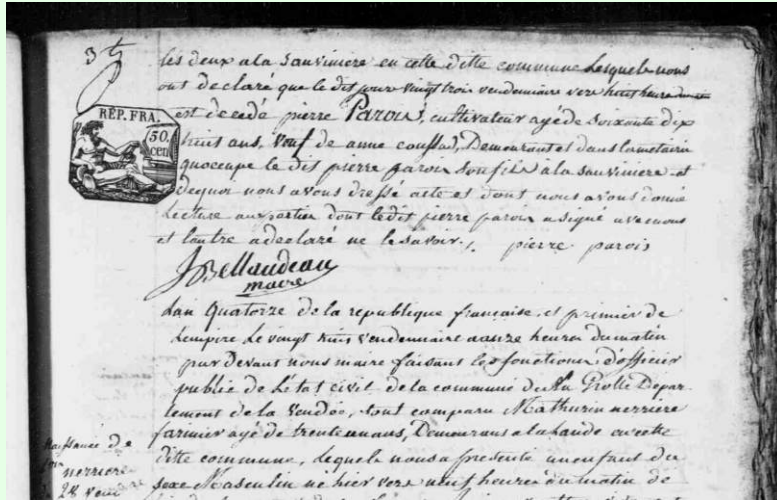 3
les deux a la Sauviniere en cette ditte commune Lesquels nous
ont declaré que le dit jour vingt trois vendemiaire vers huit heure
est decedé pierre Parois, cultivateur agé de Soixante dix
huit ans, veuf de anne Demourant et dans la metairie
RÉP. FRA.
50.
cen
quoccupe le dit pierre parois son fils a la sauviniere et
dequoi nous avons dressé acte et dont nous avons donné
Lecture au partier dont ledit pierre parois a signé avec nous
et lautre a declaré ne le savoir. pierre parois
maire
Lan Quatorze de la republique française, et premier de
Lempire Le vingt huit vendemiaire a onze heures du matin
par Devant nous maire faisant les fonctions dofficier
public de L'état civil de la commune de La Grolle Depar-
tement de la Vendée, sont comparu Mathurin nerriere
farinier agé de trente un ans, Demourans a la Lande en cette
ditte commune, lequele nous a presenté un enfant du
sexe Masculin né hier vers neuf heures du matin de
Naissance de
nerriere
28